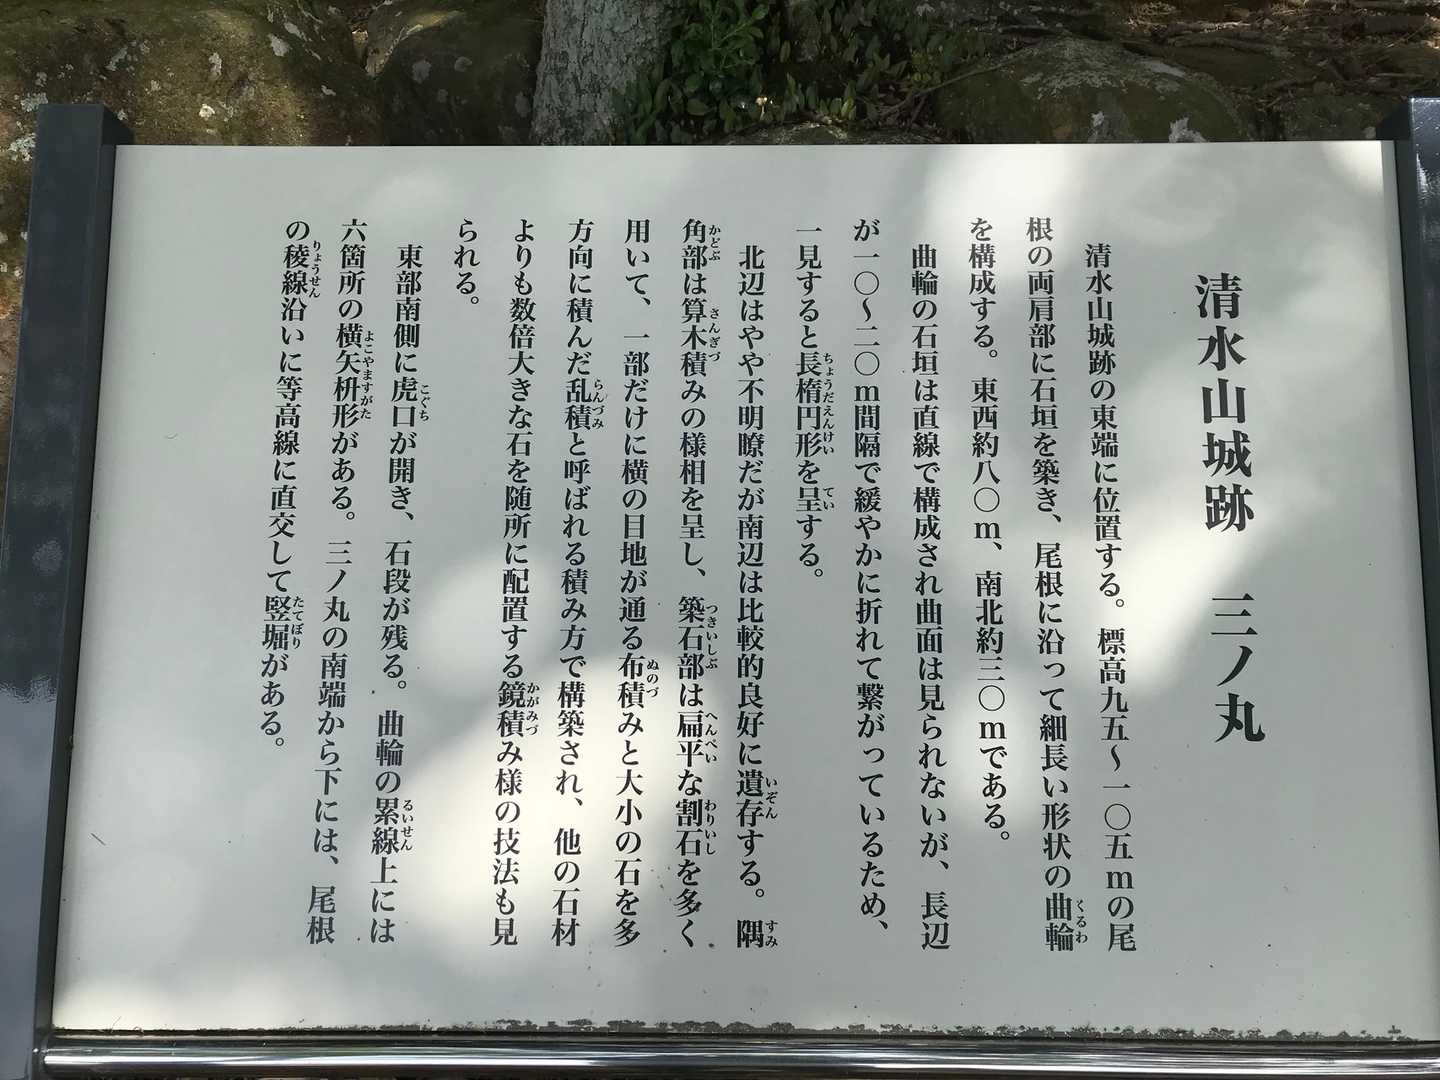 清水山城跡　三ノ丸
清水山城跡の東端に位置する。標高九五～一〇五ｍの尾
根の両肩部に石垣を築き、尾根に沿って細長い形状の曲輪
くるわ
を構成する。東西約八〇ｍ、南北約三〇ｍである。
曲輪の石垣は直線で構成され曲面は見られないが、長辺
が一〇～二〇ｍ間隔で緩やかに折れて繋がっているため、
一見すると長楕円形を呈する。
ちょうだえんけい
てい
北辺はやや不明瞭だが南辺は比較的良好に遺存する。隅
いぞん
すみ
角部は算木積みの様相を呈し、築石部は扁平な割石を多く
かどぶ
さんぎづ
つきいしぶ
へんぺい
わりいし
用いて、一部だけに横の目地が通る布積みと大小の石を多
ぬのづ
方向に積んだ乱積と呼ばれる積み方で構築され、他の石材
らんづみ
よりも数倍大きな石を随所に配置する鏡積み様の技法も見
かがみづ
られる。
東部南側に虎口が開き、石段が残る。曲輪の累線上には
こぐち
るいせん
六箇所の横矢枡形がある。三ノ丸の南端から下には、尾根
よこやますがた
の稜線沿いに等高線に直交して竪堀がある。
りょうせん
たてぼり